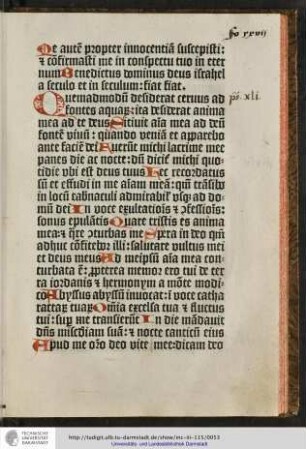 fo xxvij
Me autē propter innocentiā suscepisti:
⁊ cōfirmasti me in conspectu tuo in eter
num Benedictus dominus deus israhel
a seculo et in seculum: fiat fiat.
Quemadmodū desiderat ceruus ad
fontes aquaꝝ: ita desiderat anima
ps̄. xli.
mea ad te deus Sitiuit aīa mea ad deū
fontē viuū: quando veniā et apparebo
ante faciē dei Fuerūt michi lacrime mee
panes die ac nocte: dū dicit̄ michi quo
tidie vbi est deus tuus Hec recordatus
sū et effudi in me aīam meā: qm̄ trāsibo
in locū tabnaculi admirabil' vsqꝫ ad do
mū dei In voce exultatiōis ⁊ ꝯfessiōis:
sonus epulātis Quare tristis es anima
mea: ⁊ q̄re ꝯturbas me Spera in deo qm̄
adhuc cōfitebor illi: salutare vultus mei
et deus meus Ad meipsū aīa mea con
turbata ē: ꝓpterea memor ero tui de ter
ra iordanis ⁊ hermonijm a mōte modi
co Abyssus abyssū inuocat: i voce catha
ractaꝝ tuaꝝ Oīa excelsa tua ⁊ fluctus
tui: sup me transierūt In die mādauit
dn̄s misc̄diam suā: ⁊ nocte canticū eius
Apud me or̄o deo vite mee: dicam deo
TECHNISCHE UNIVERSITÄT DARMSTADT
http://tudigit.ulb.tu-darmstadt.de/show/inc-iii-115/0053
Universitäts- und Landesbibliothek Darmstadt